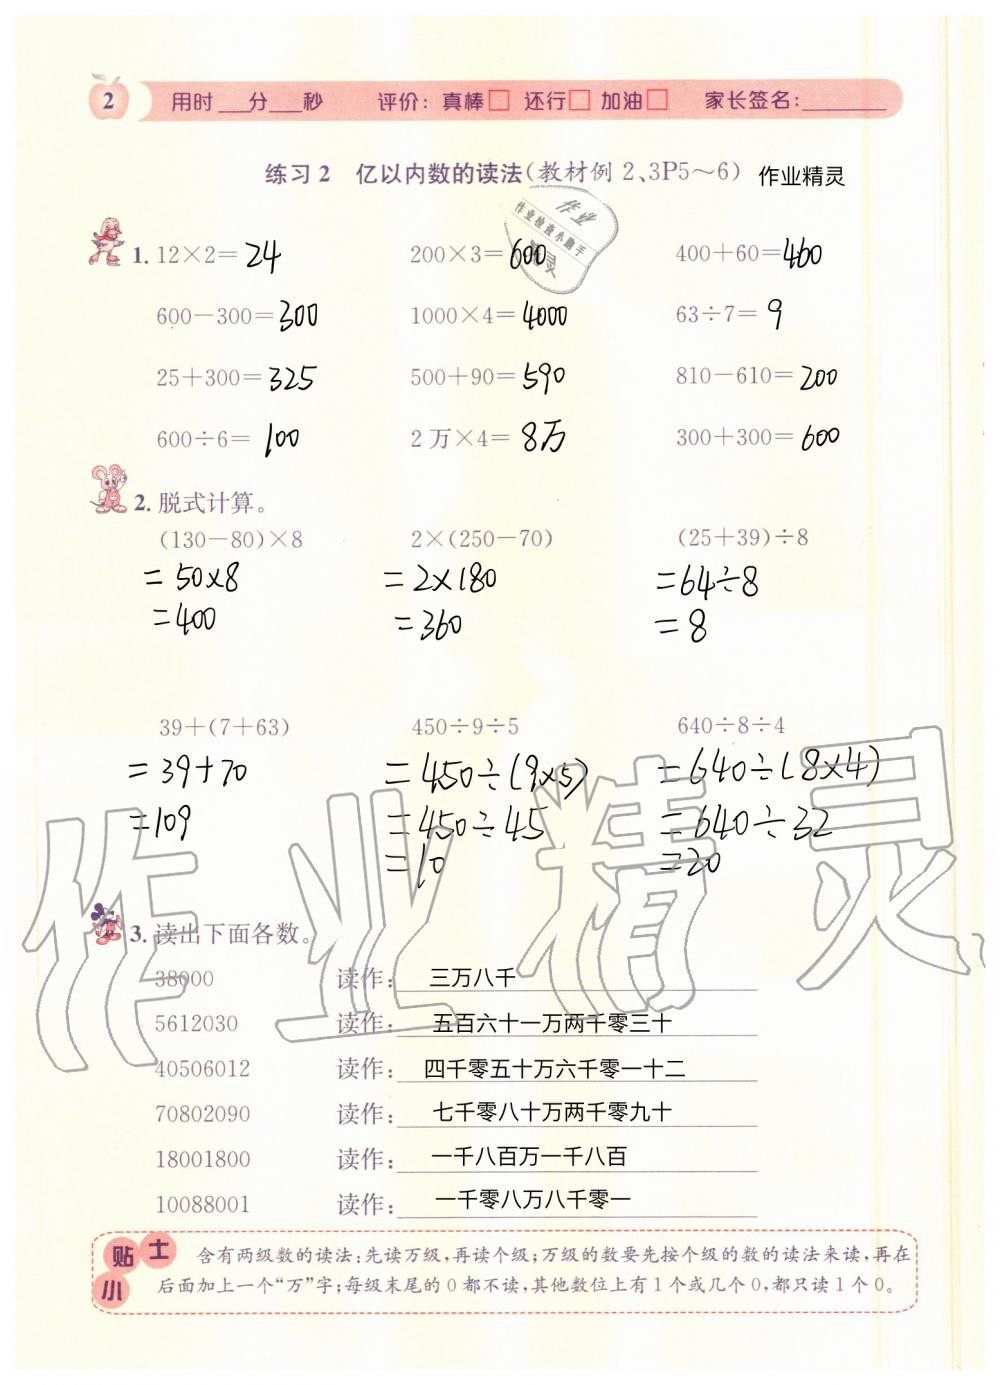 2 用时___分___秒 评价:真棒□ 还行□ 加油□ 家长签名:_______
练习2 亿以内数的读法(教材例2、3P5~6) 作业精灵
作业
作业检查小助手
精灵
1. 12×2=24 200×3=600 400+60=460
600-300=300 1000×4=4000 63÷7=9
25+300=325 500+90=590 810-610=200
600÷6=100 2万×4=8万 300+300=600
2. 脱式计算。
(130-80)×8 2×(250-70) (25+39)÷8
=50×8 =2×180 =64÷8
=400 =360 =8
39+(7+63) 450÷9÷5 640÷8÷4
=39+70 =450÷(9×5) =640÷(8×4)
=109 =450÷45 =640÷32
=10 =20
作业精灵
3. 读出下面各数。
38000 读作: 三万八千
5612030 读作: 五百六十一万两千零三十
40506012 读作: 四千零五十万六千零一十二
70802090 读作: 七千零八十万两千零九十
18001800 读作: 一千八百万一千八百
10088001 读作: 一千零八万八千零一
小贴士
含有两级数的读法:先读万级,再读个级;万级的数要先按个级的数的读法来读,再在
后面加上一个“万”字;每级末尾的0都不读,其他数位上有1个或几个0,都只读1个0。